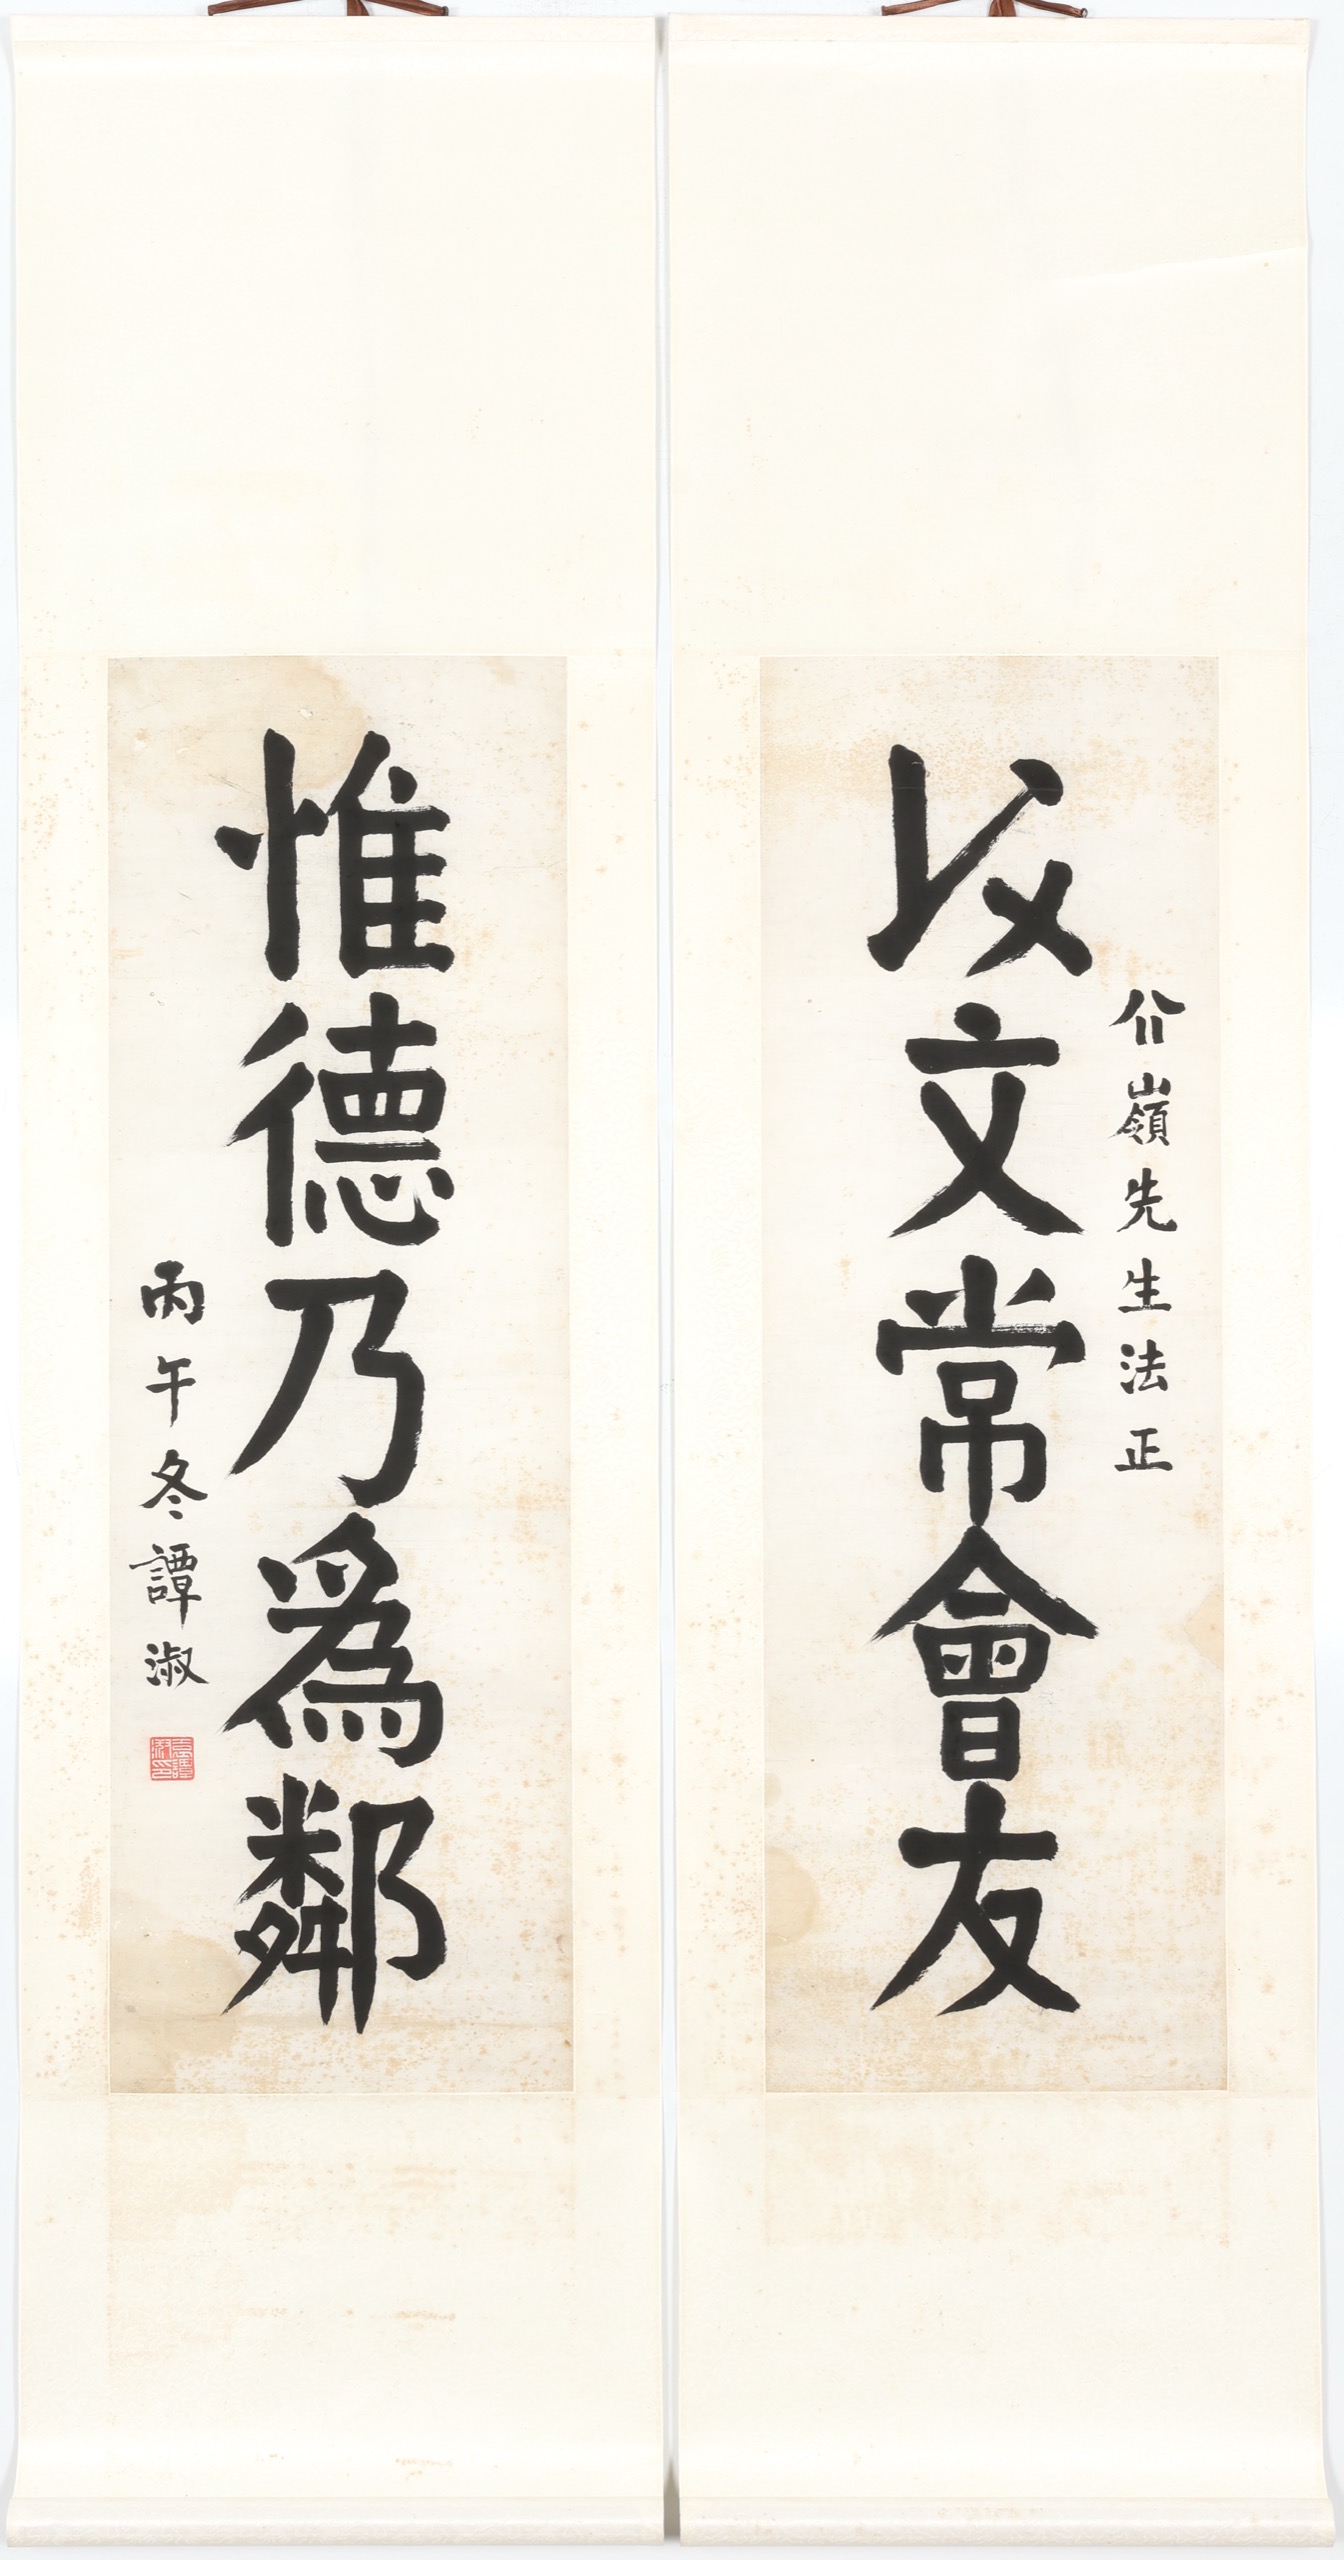 以文常會友
介嶺先生法正
惟德乃爲鄰
丙午冬譚淑